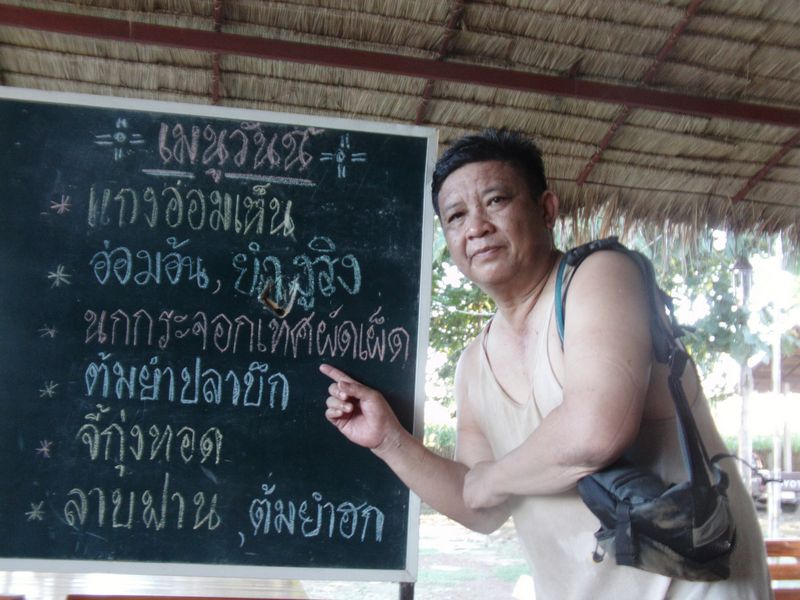 เมนูวันนี้
* แกงอ่อมเห็น
* อ่อมอ้น, ยำงูริง
* นกกระจอกเทศผัดเผ็ด
* ต้มยำปลาบึก
* จี้กุ่งทอด
* ลาบฟาน, ต้มยำฮก